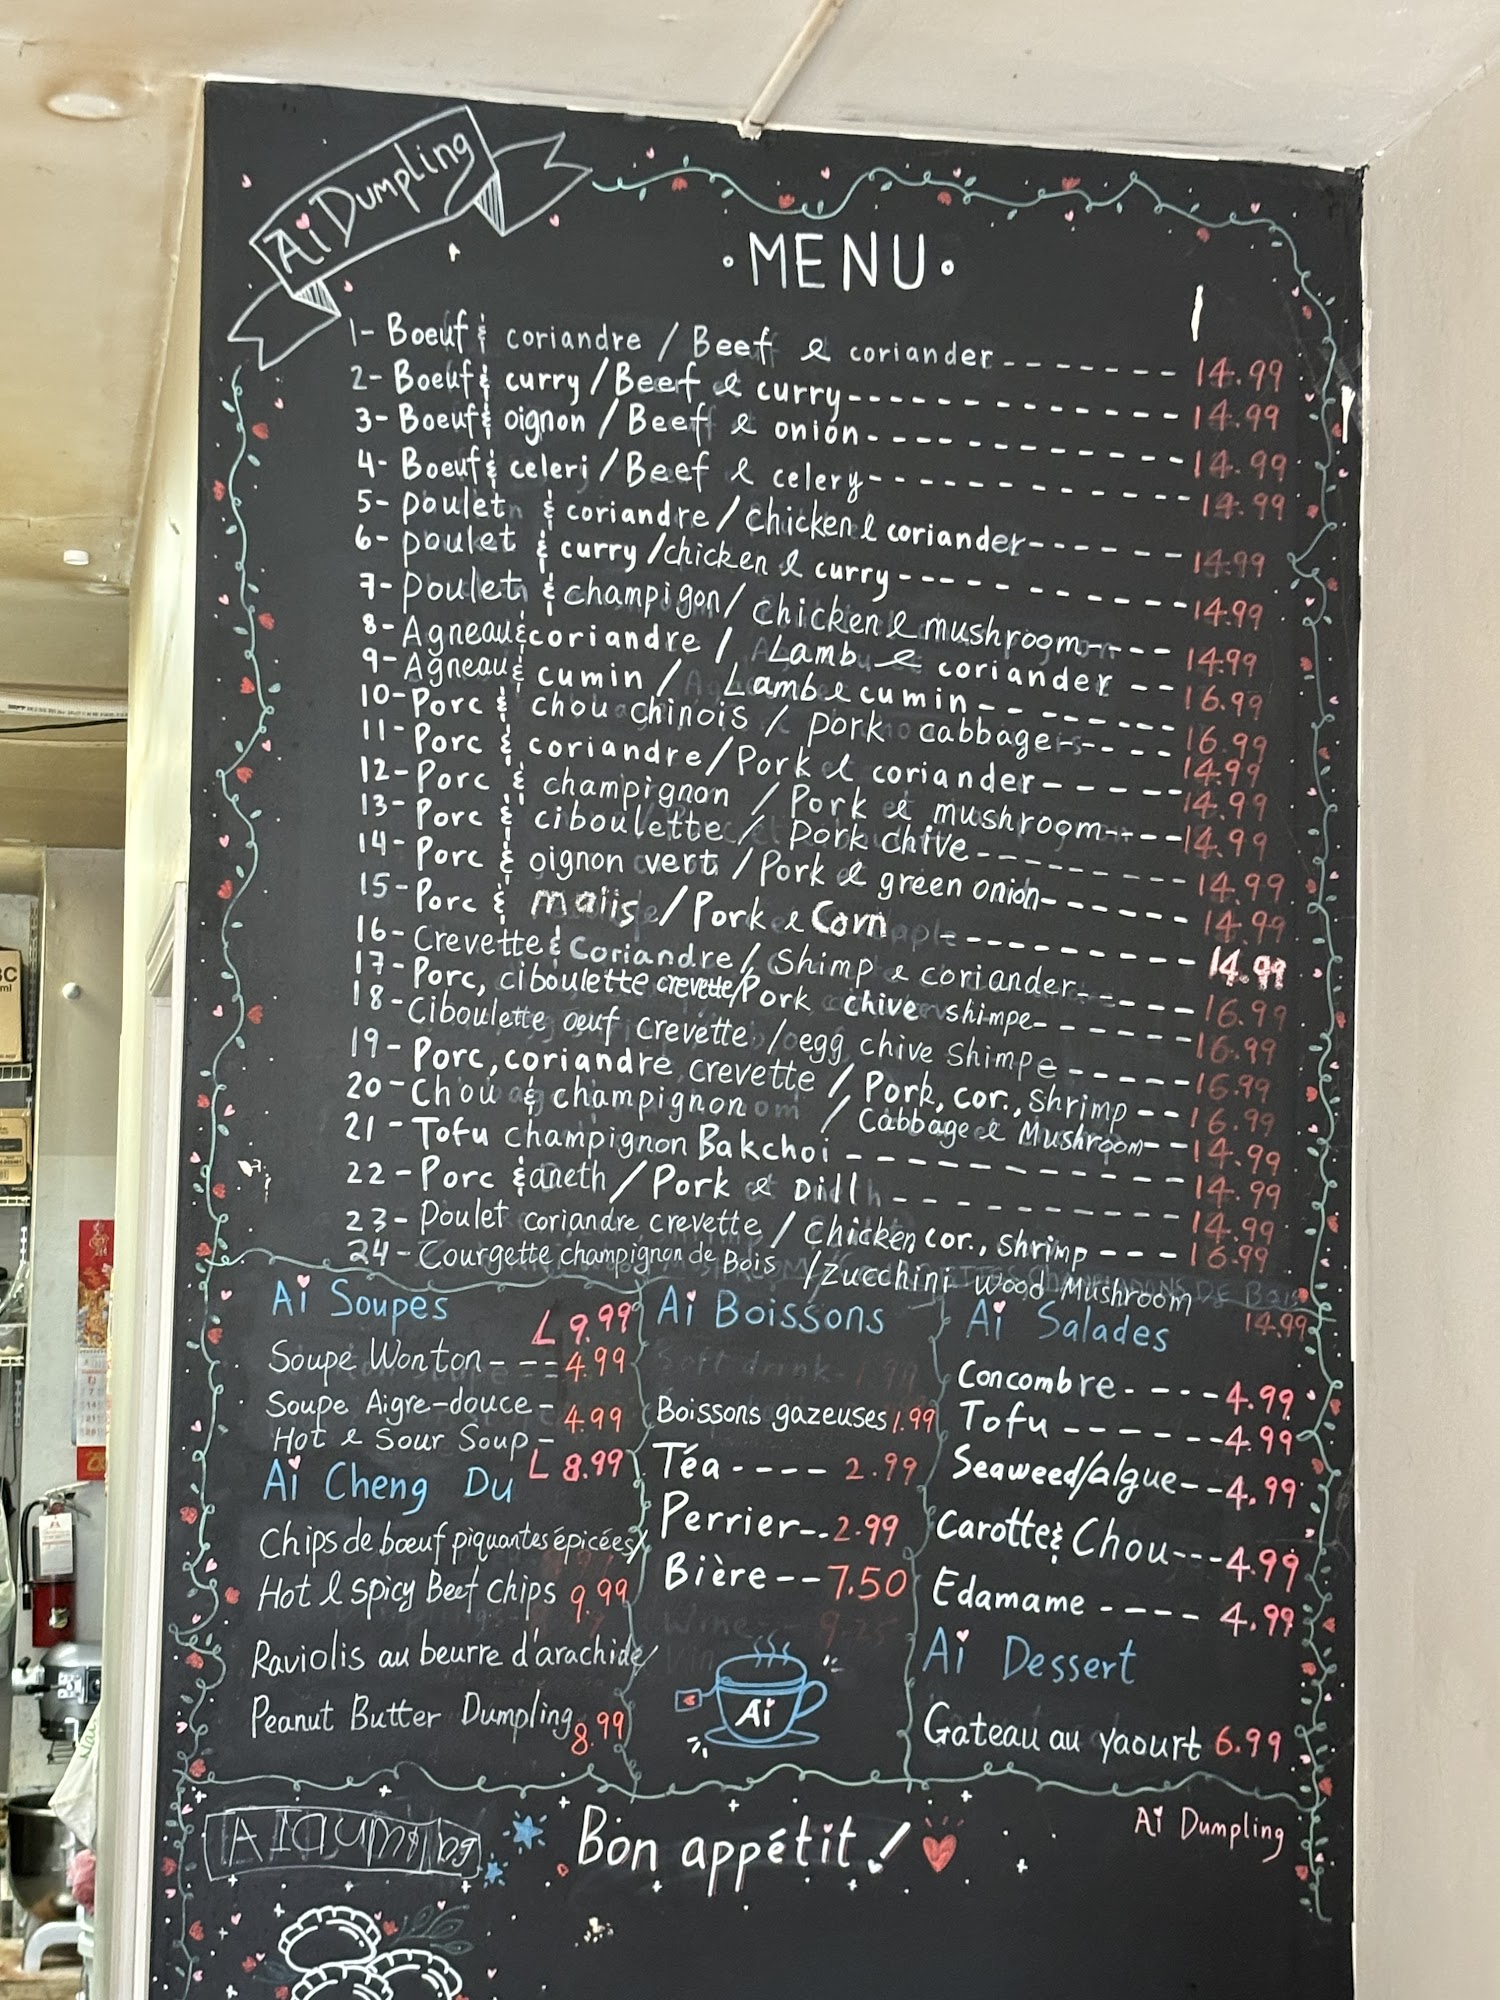 Ai Dumpling
• MENU •
1- Boeuf & coriandre / Beef & coriander ------- 14.99
2- Boeuf & curry / Beef & curry -------------- 14.99
3- Boeuf & oignon / Beef & onion ------------- 14.99
4- Boeuf & celeri / Beef & celery ------------- 14.99
5- poulet & coriandre / chicken & coriander ------ 14.99
6- poulet & curry / chicken & curry ---------- 14.99
7- Poulet & champigon / chicken & mushroom ---- 14.99
8- Agneau & coriandre / Lamb & coriander -- 16.99
9- Agneau & cumin / Lamb & cumin -------- 16.99
10- Porc & chou chinois / pork cabbage ---- 14.99
11- Porc & coriandre / Pork & coriander ----- 14.99
12- Porc & champignon / Pork & mushroom ---- 14.99
13- Porc & ciboulette / Pork chive -------- 14.99
14- Porc & oignon vert / Pork & green onion ------ 14.99
15- Porc & maiis / Pork & Corn --------- 14.99
16- Crevette & Coriandre / Shimp & coriander ----- 16.99
17- Porc, ciboulette crevette / Pork chive shimpe ------ 16.99
18- Ciboulette œuf crevette / egg chive shimpe ----- 16.99
19- Porc, coriandre, crevette / Pork, cor., shrimp -- 16.99
20- Chou & champignon / Cabbage & Mushroom -- 14.99
21- Tofu champignon Bakchoi ---------- 14.99
22- Porc & aneth / Pork & Dill -------- 14.99
23- Poulet coriandre crevette / chicken cor., shrimp --- 16.99
24- Courgette champignon de Bois / zucchini wood Mushroom
14.99
Ai Soupes
L 9.99
Soupe Wonton ---- 4.99
Soupe Aigre-douce - 4.99
Hot & Sour Soup -
L 8.99
Ai Cheng Du
Chips de bœuf piquantes épicées /
Hot & spicy Beef chips 9.99
Raviolis au beurre d'arachide /
Peanut Butter Dumpling 8.99
Ai Boissons
Soft drink - 1.99
Boissons gazeuses 1.99
Téa ---- 2.99
Perrier --. 2.99
Bière -- 7.50
Wine -- 9.25
Ai
Ai Salades
Concombre ----- 4.99
Tofu ------- 4.99
Seaweed/algue -- 4.99
Carotte & Chou --- 4.99
Edamame ---- 4.99
Ai Dessert
Gateau au yaourt 6.99
Bon appétit !
Ai Dumpling